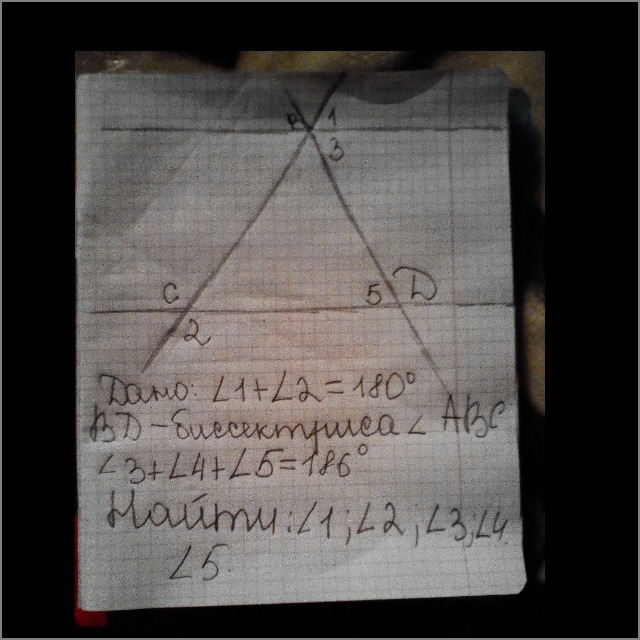 B 1
3
C 5 D
2
Дано: ∠1+∠2=180°
BD-биссектриса ∠ ABC
∠3+∠4+∠5=186°
Найти: ∠1; ∠2; ∠3, ∠4
∠5